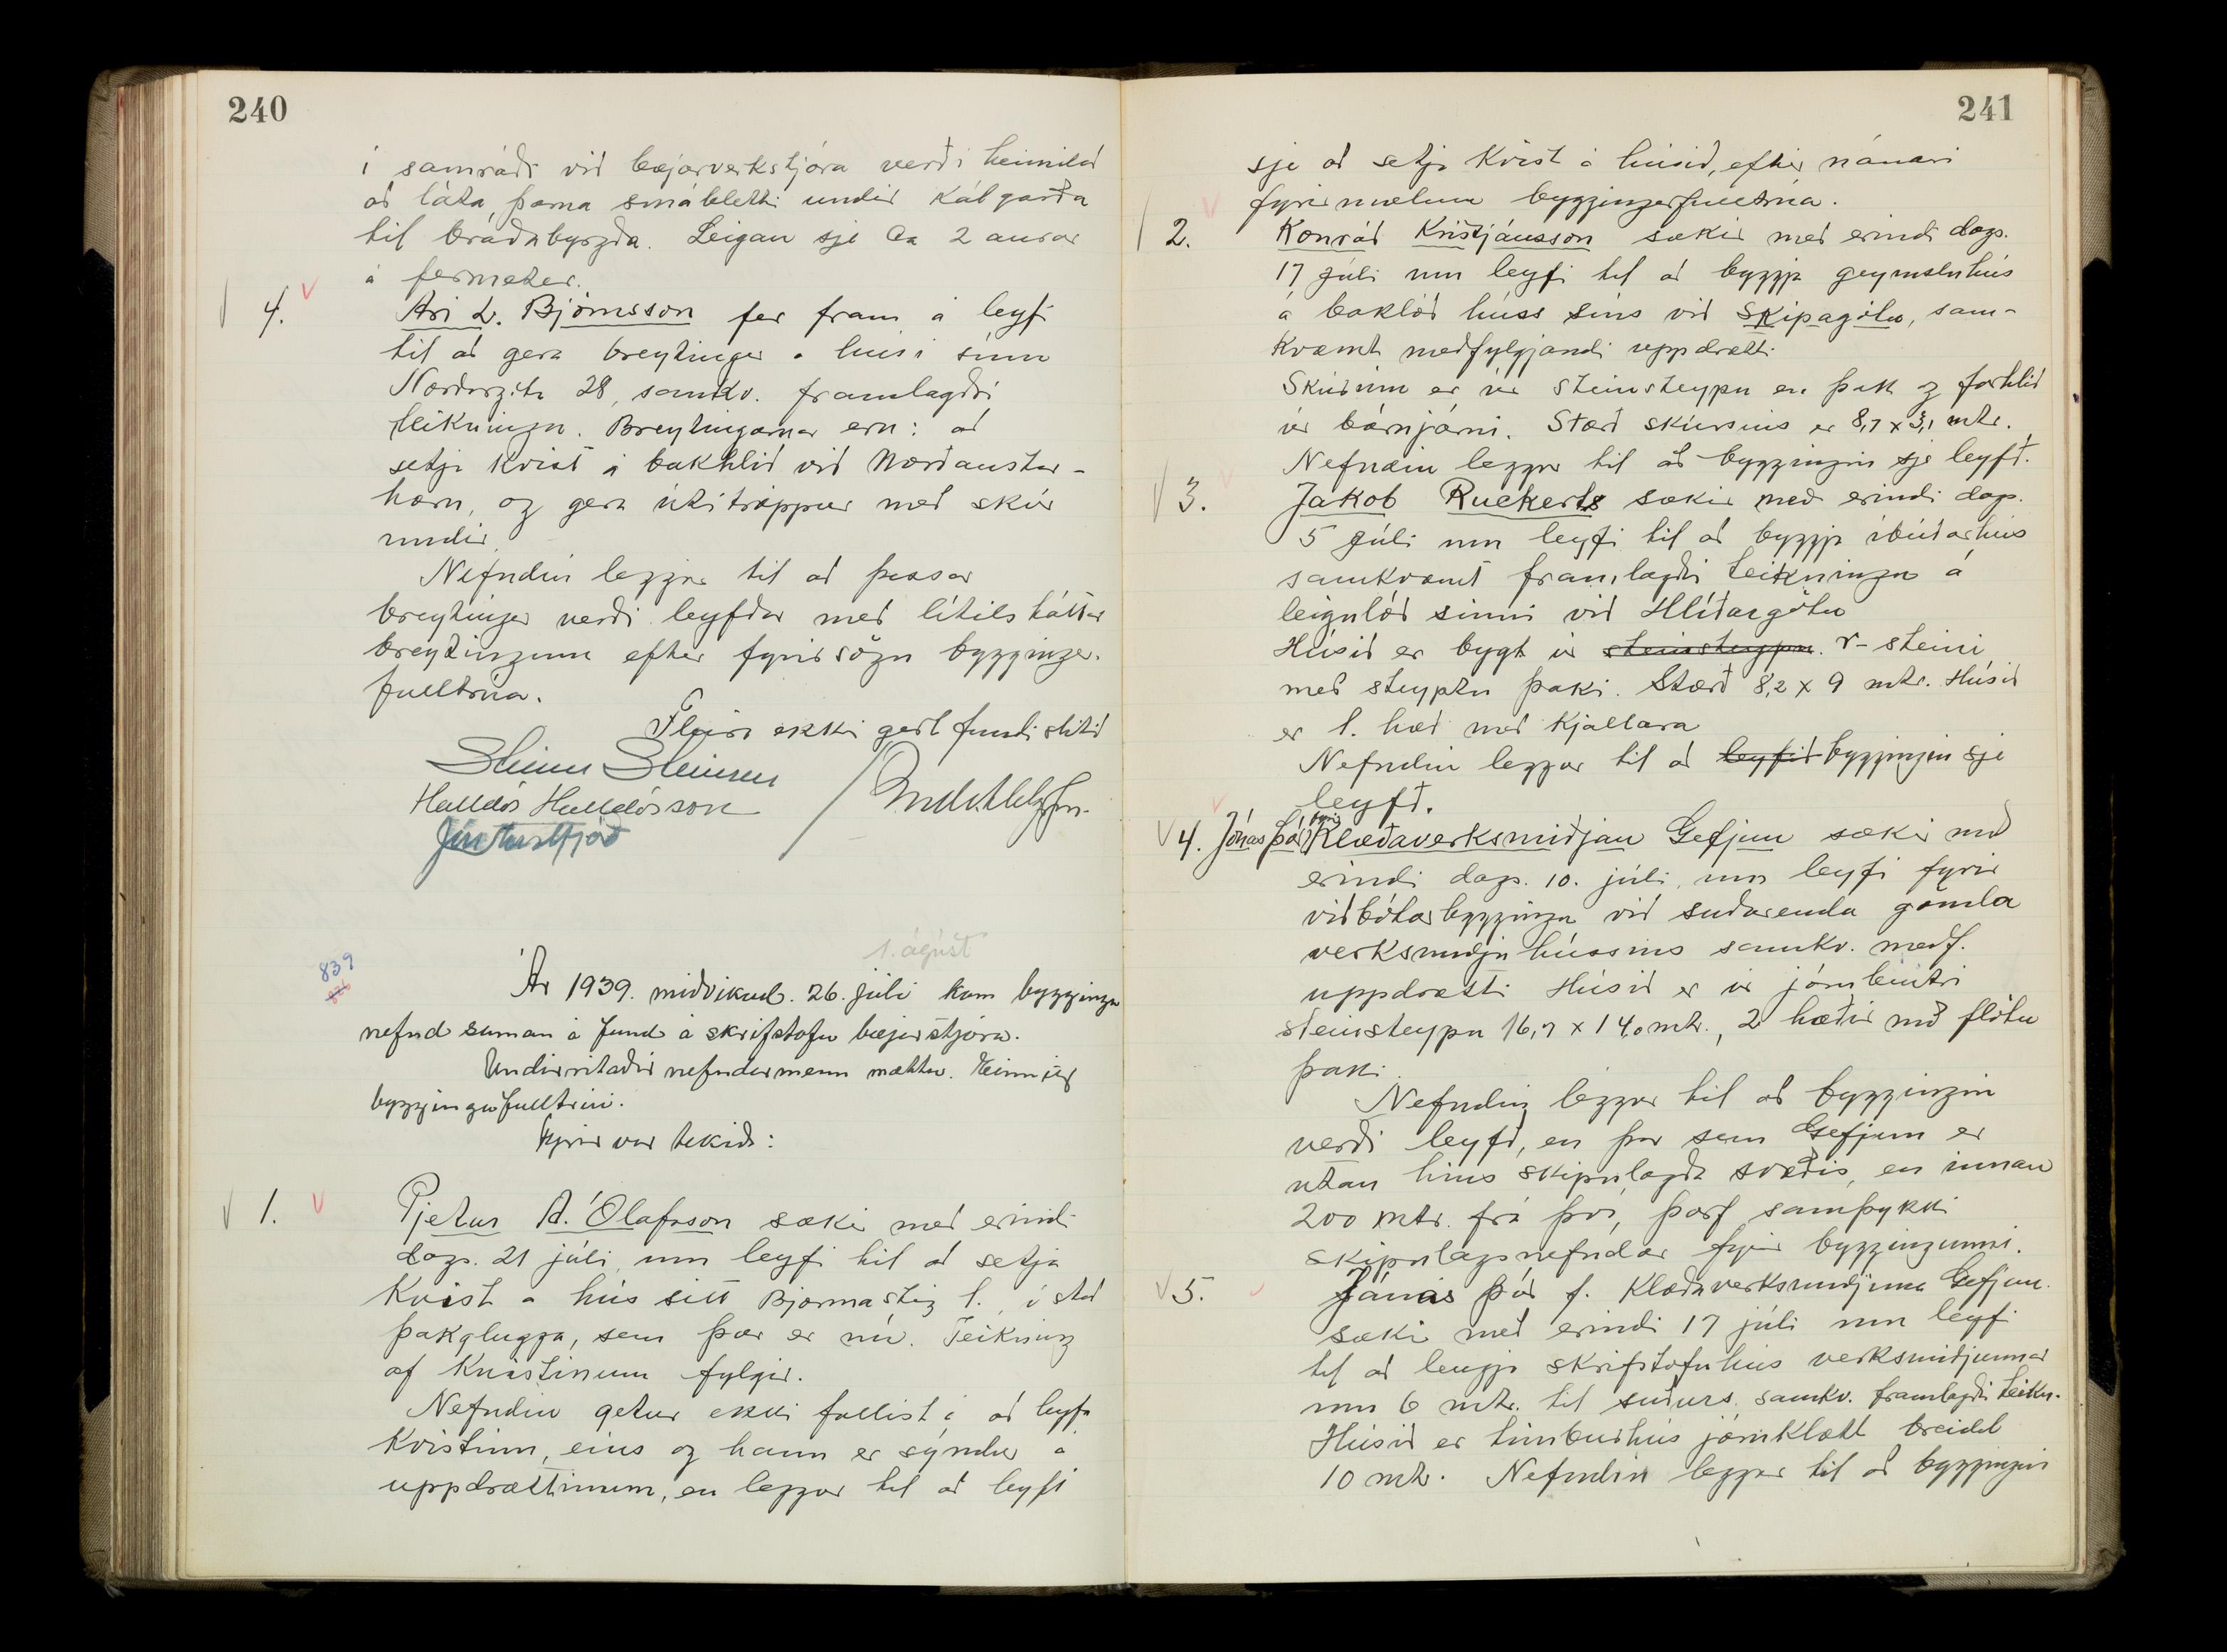 240
í samráði við bæjarverkstjóra verði heimilað
að láta þarna smábletti undir kálgarða
til bráðabyrgða. Leigan sje ca 2 aurar
á fermeter.
4. Ari L. Björnsson fer fram á leyfi
til að gera breytingar á húsi sínu
Norðurgötu 28, samkv. framlagðri
teikningu. Breytingarnar eru: að
setja kvist á bakhlið við Norðaustur-
horn, og gera útitröppur með skúr
undir.
Nefndin leggur til að þessar
breytingar verði leyfðar með lítilsháttar
breytingum eftir fyrirsögn bygginga-
fulltrúa.
Fleira ekki gert fundi slitið
Steinn Steinsen
Halldór Halldórsson
1. ágúst
839
Ár 1939. miðvikud. 26. júlí kom bygginga
nefnd saman á fund á skrifstofu bæjarstjóra.
Undirritaðir nefndarmenn mættu. Einnig
byggingafulltrúi.
Fyrir var tekið:
1. Pjetur H. Ólafsson sækir með erindi
dags. 21 júlí um leyfi til að setja
Kvist á hús sitt Bjarmastíg 1., í stað
þakglugga, sem þar er nú. Teikning
af Kvistinum fylgir.
Nefndin getur ekki fallist á að leyfa
Kvistinn, eins og hann er sýndur á
uppdrættinum, en leggur til að leyft
241
sje að setja Kvist á húsið, eftir nánari
fyrirmælum byggingafulltrúa.
2. Konráð Kristjánsson sækir með erindi dags.
17 júlí um leyfi til að byggja geymsluhús
á baklóð húss síns við Skipagötu, sam-
kvæmt meðfylgjandi uppdrætti.
Skúrinn er úr steinsteypu en þak og forhlið
úr bárujárni. Stærð skúrsins er 8,7 x 3,1 mtr.
Nefndin leggur til að byggingin sje leyfð.
3. Jakob Ruckerts sækir með erindi dags.
5 júlí um leyfi til að byggja íbúðarhús
samkvæmt framlagðri teikningu á
leigulóð sinni við Hlíðargötu
Húsið er bygt úr steinsteypu. r-steini
með steyptu þaki. Stærð 8,2 x 9 mtr. Húsið
er 1. hæð með Kjallara
Nefndin leggur til að leyfið byggingin sje
leyfð.
4. Jónas Þór fyrir Klæðaverksmiðjan Gefjun sækir með
erindi dags. 10. júlí, um leyfi fyrir
viðbótarbyggingu við suðurenda gamla
verksmiðjuhússins samkv. meðf.
uppdrætti Húsið er úr járnbentri
steinsteypu 16,7 x 14,0 mtr., 2 hæðir með flötu
þaki.
Nefndin leggur til að byggingin
verði leyfð, en þar sem Gefjun er
utan hins skipulagða svæðis, en innan
200 mtr. frá því, þarf samþykki
skipulagsnefndar fyrir byggingunni.
5. Jónas Þór f. Klæðaverksmiðjuna Gefjun.
sækir með erindi 17 júlí um leyfi
til að lengja skrifstofuhús verksmiðjunnar
um 6 mtr. til suðurs. samkv. framlagðri teikn.
Húsið er timburhús járnklætt breidd
10 mtr. Nefndin leggur til að byggingin